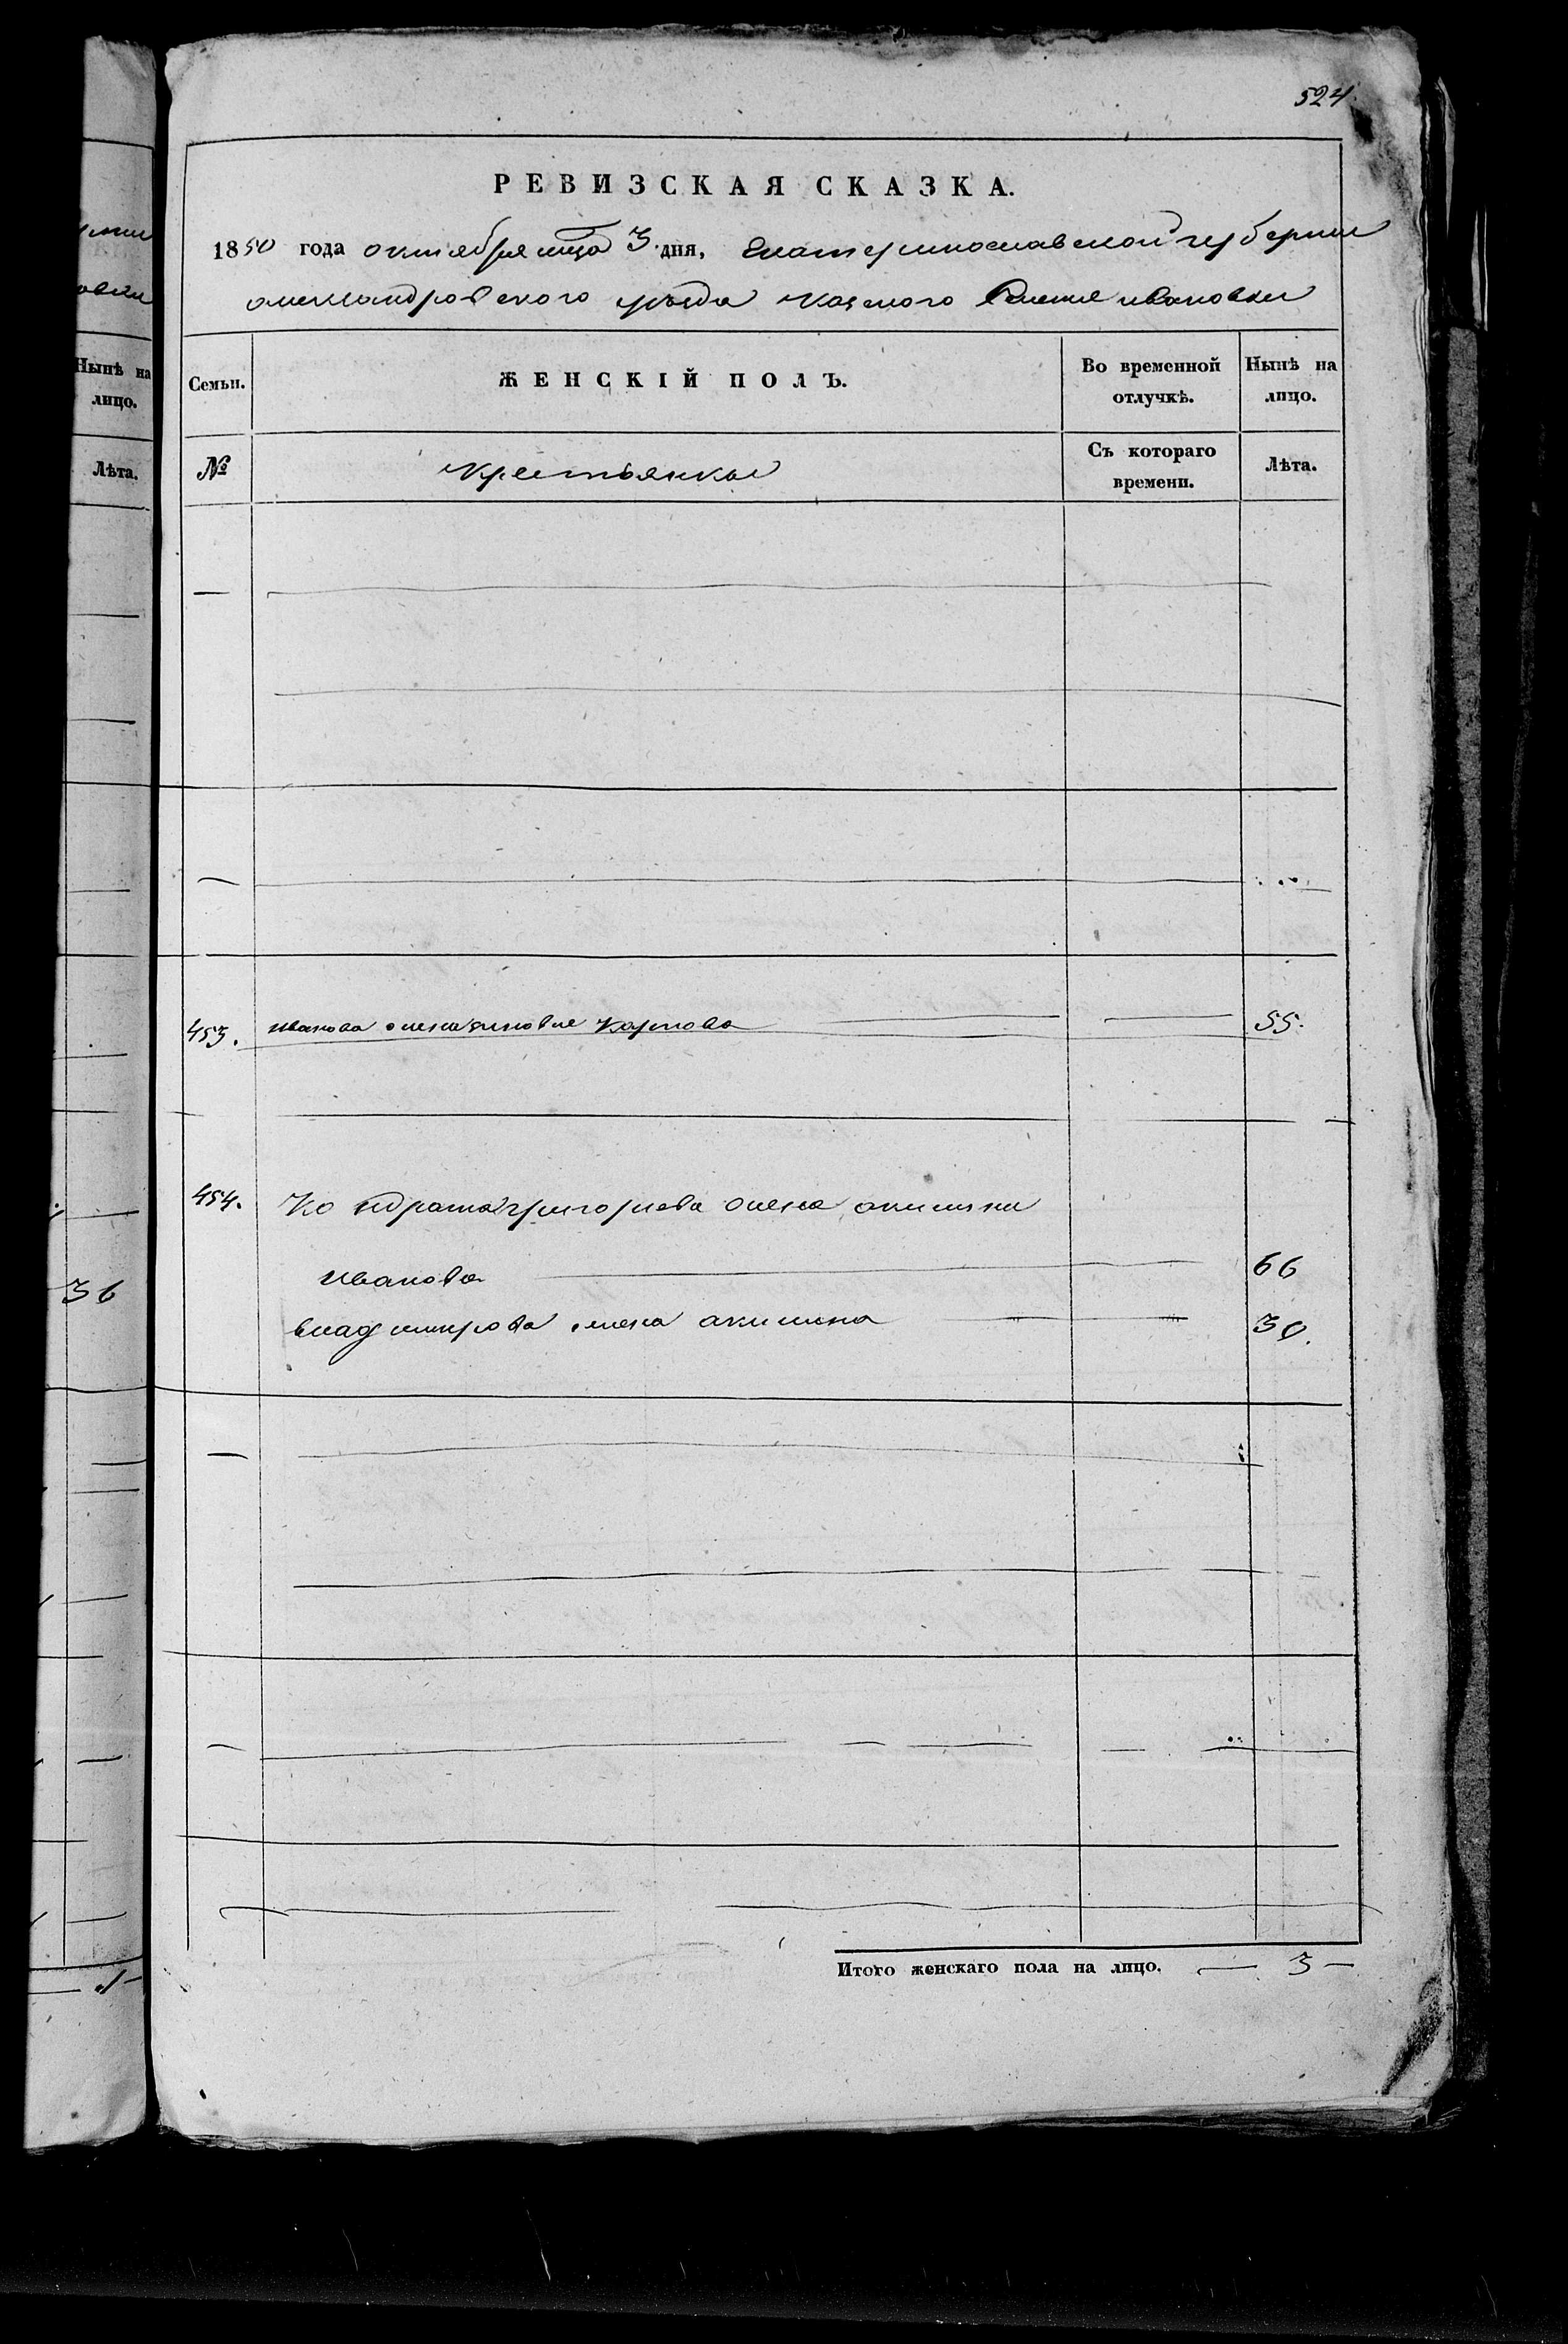 524
РЕВИЗСКАЯ СКАЗКА.
1850 года октября мца 3 дня, Екатеринославской губернии
александровского уезда казеного Селения ивановки
Нынѣ на
лицо.
Лѣта.
Семьи.
ЖЕНСКІЙ ПОЛЪ.
Во временной
отлучкѣ.
Нынѣ на
лицо.
№
Крестьянка
Съ котораго
времени.
Лѣта.
453. иванова жена зиновия Карпова 55.
454. Кондрата григориева жена
иванова 66
36
владимирова жена акилина 30.
Итого женскаго пола на лицо. 3